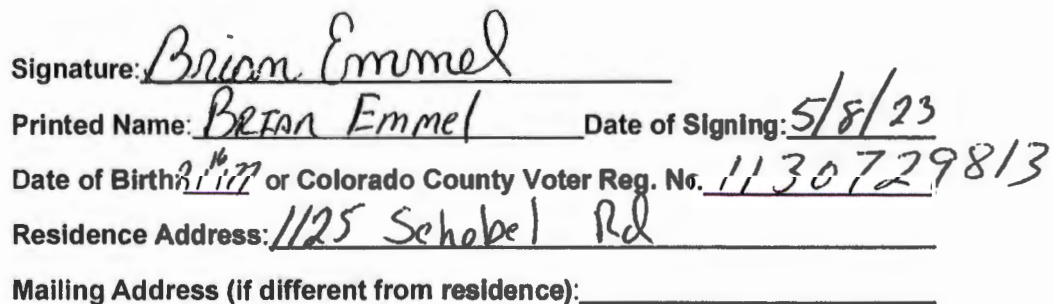 Signature: Brian Emmel
Printed Name: BRIAN Emmel Date of Signing: 5/8/23
Date of Birth or Colorado County Voter Reg. No. 1130729813
Residence Address: 1125 Schobel Rd
Mailing Address (if different from residence):